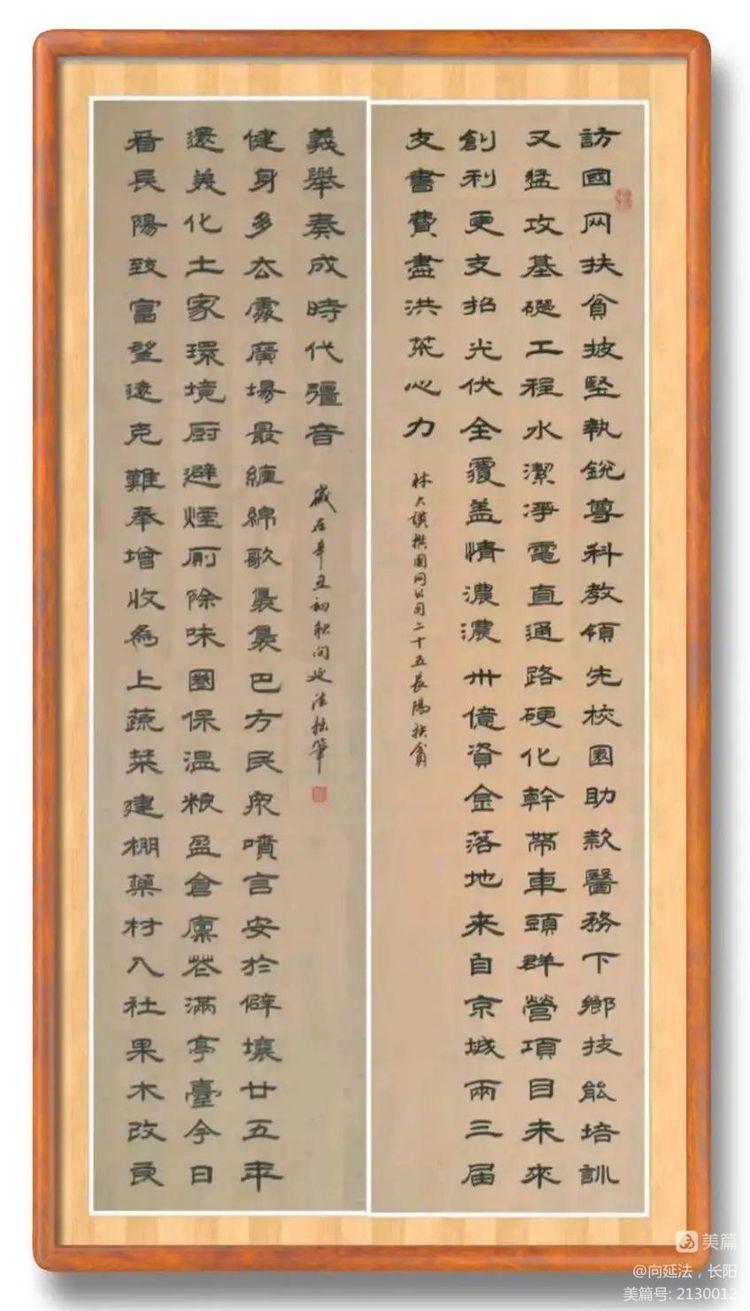 訪國网扶貧披堅執銳尊科教領先校園助款醫務下鄉技能培訓
又猛攻基礎工程水潔淨電直通路硬化幹帶車頭群營項目未來
創利更支招光伏全覆盖情濃濃卅億資金落地来自京城兩三届
支書費盡洪荒心力
林大謨撰國网公司二十五長陽扶貧
看長陽致富望遠克難奉增收為上蔬菜建棚藥材入社果木改良
還美化土家環境厨避煙厠除味圈保温粮盈倉廪花滿亭臺今日
健身多去處廣場最纏綿歌裊裊巴方民众噴言安於僻壤廿五年
義舉奏成時代彊音
歲在辛丑初秋向延法拙筆
美篇
@向延法，长阳
美篇号: 2130012